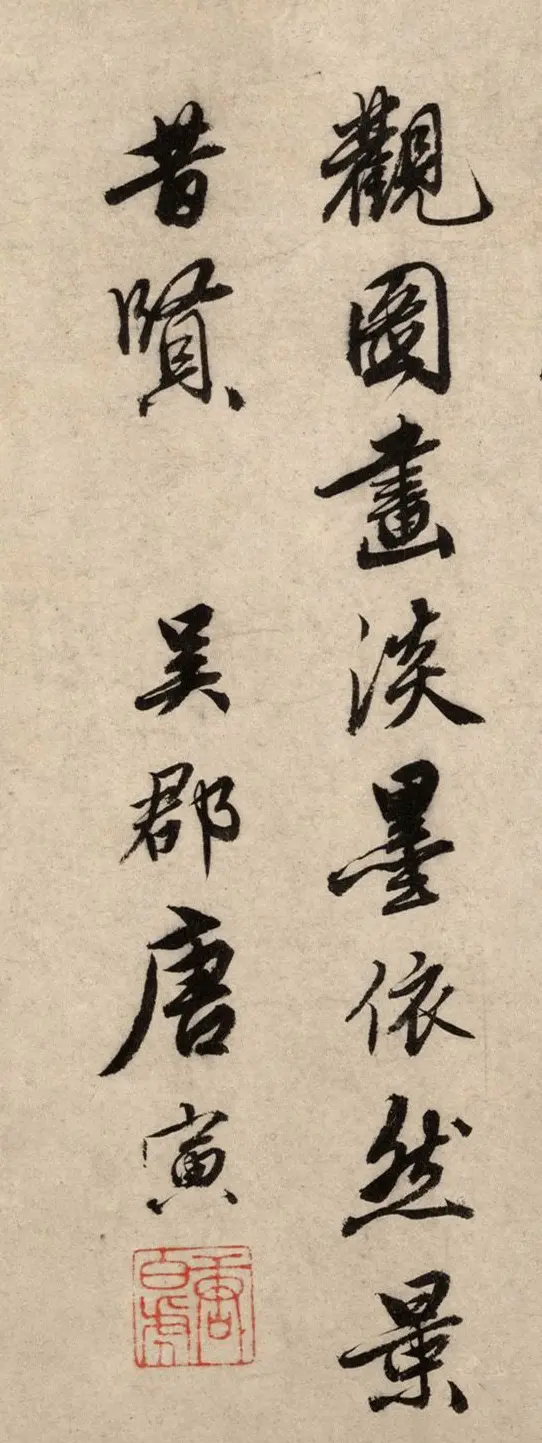 觀圖畫淡墨依然景
昔賢 吳郡唐寅
唐白虎